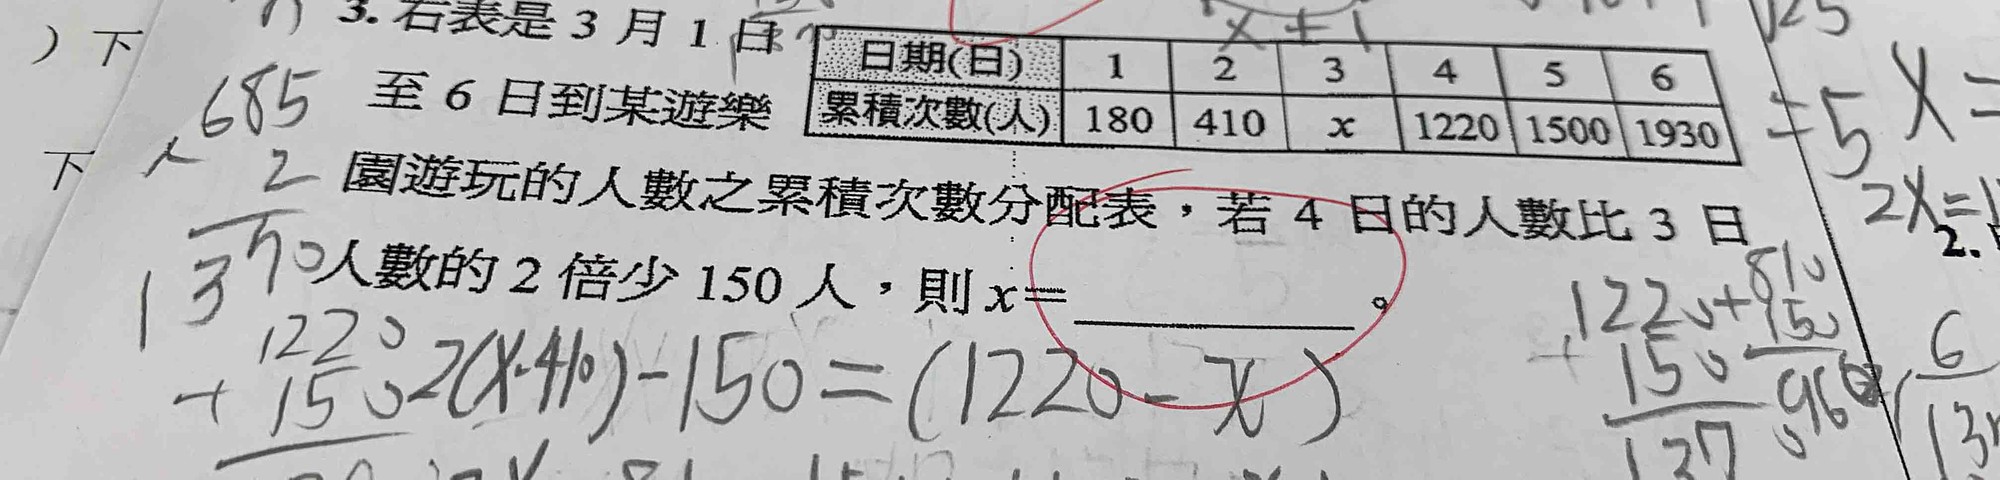 3. 右表是 3 月 1 日
至 6 日到某遊樂
園遊玩的人數之累積次數分配表，若 4 日的人數比 3 日
人數的 2 倍少 150 人，則 x＝＿＿＿＿。
日期(日) 1 2 3 4 5 6
累積次數(人) 180 410 x 1220 1500 1930
) 下
下
685
2
1370
1220
+ 150
2(x-410)-150=(1220-x)
x+1
1220+
150
137
810
150
960
=5
x=
2x=1
2.
6